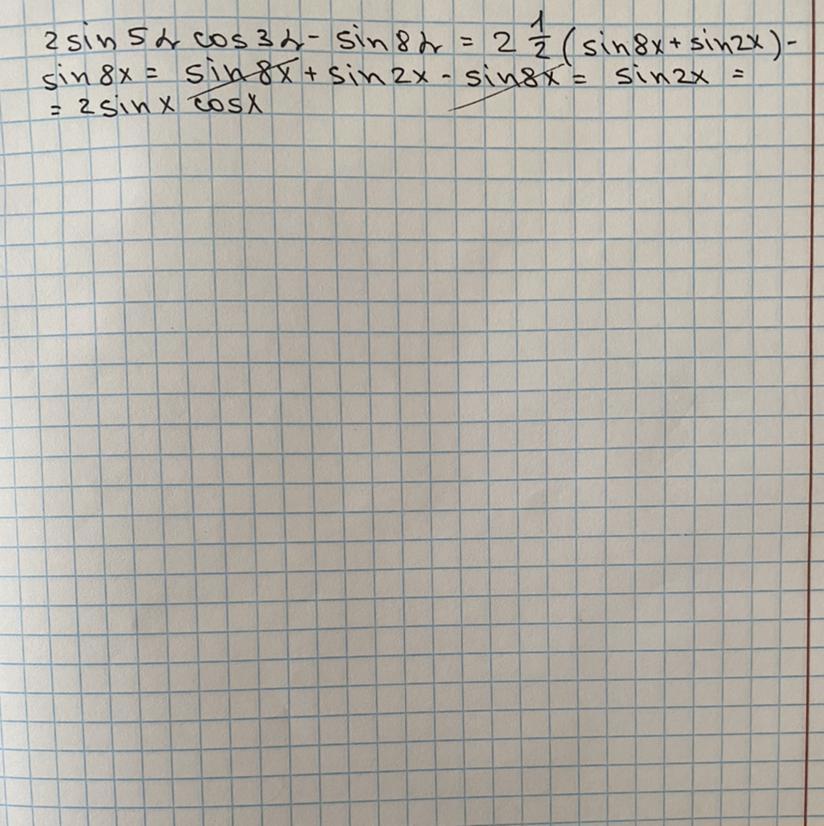 2 sin 5α cos 3α - sin 8α = 2 1/2 (sin8x + sin2x) -
sin 8x = sin 8x + sin 2x - sin8x = sin2x =
= 2 sin x cos x